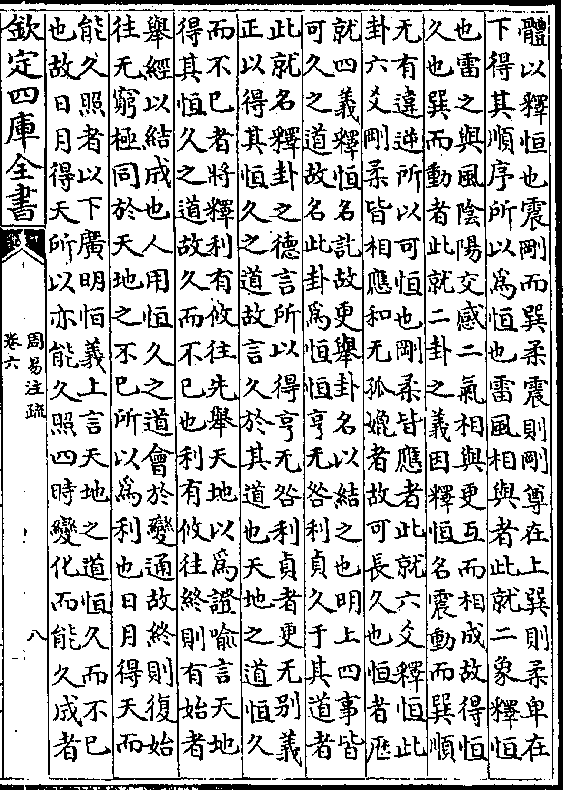 體以釋恒也震剛而巽柔震則剛尊在上巽則柔卑在
下得其順序所以爲恒也雷風相與者此就二象釋恒
也雷之與風陰陽交感二氣相與更互而相成故得恒
久也巽而動者此就二卦之義因釋恒名震動而巽順
无有違逆所以可恒也剛柔皆應者此就六爻釋恒此
卦六爻剛柔皆相應和无孤媲者故可長久也恒者歴
就四義釋恒名訖故更舉卦名以結之也明上四事皆
可久之道故名此卦爲恒恒亨无咎利貞久于其道者
此就名釋卦之德言所以得亨无咎利貞者更无别義
正以得其恒久之道故言久於其道也天地之道恒久
而不已者將釋利有攸往先舉天地以爲證喻言天地
得其恒久之道故久而不已也利有攸往終則有始者
舉經以結成也人用恒久之道會於變通故終則復始
往无窮極同於天地之不已所以爲利也日月得天而
能久照者以下廣明恒義上言天地之道恒久而不已
也故日月得天所以亦能久照四時變化而能久成者
欽定四庫全書
周易注疏
卷六
八